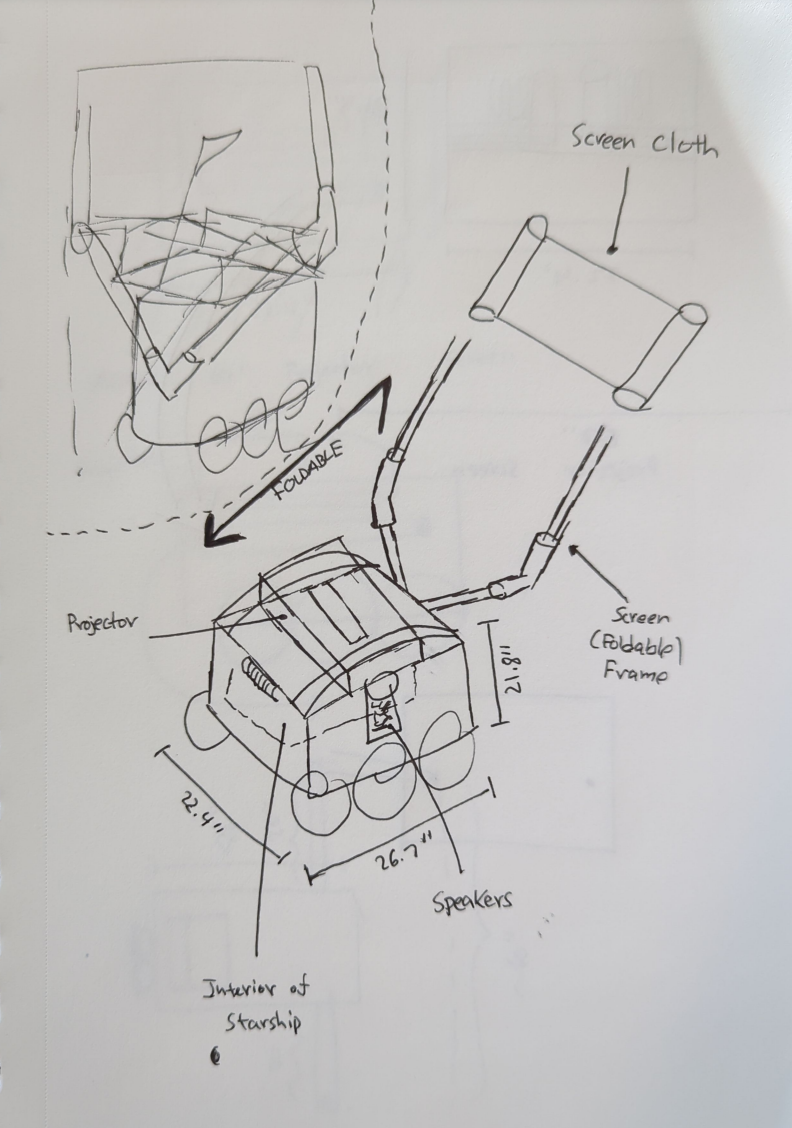 Screen Cloth
FOLDABLE
Projector
Screen
(Foldable)
Frame
21.8"
22.4"
26.7"
Speakers
Interior of
Starship